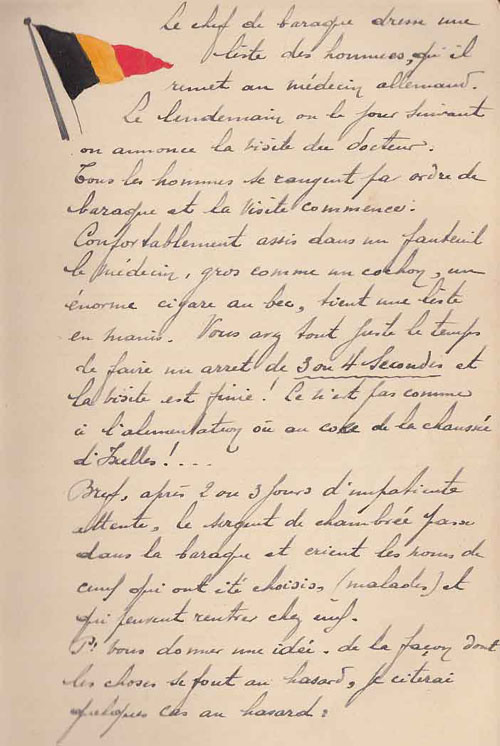 Le chef de baraque dresse une
liste des hommes, qu'il
remet au médecin allemand.
Le lendemain ou le jour suivant
on annonce la visite du docteur.
Tous les hommes se rangent pa ordre de
baraque et la visite commence.
Confortablement assis dans un fauteuil
le Médecin, gros comme un cochon, un
énorme cigare au bec, tient une liste
en mains. Vous avez tout juste le temps
de faire un arret de 3 ou 4 Secondes et
la visite est finie! Ce n'est pas comme
à l'alimentation où au coke de la chaussée
d'Ixelles!....
Bref, après 2 ou 3 jours d'impatiente
attente, le sergent de chambrée passe
dans la baraque et crient les noms de
ceux qui ont été choisis, (malades) et
qui peuvent rentrer chez eux.
Pr vous donner une idée. de la façon dont
les choses se font au hasard, je citerai
quelques cas au hasard: